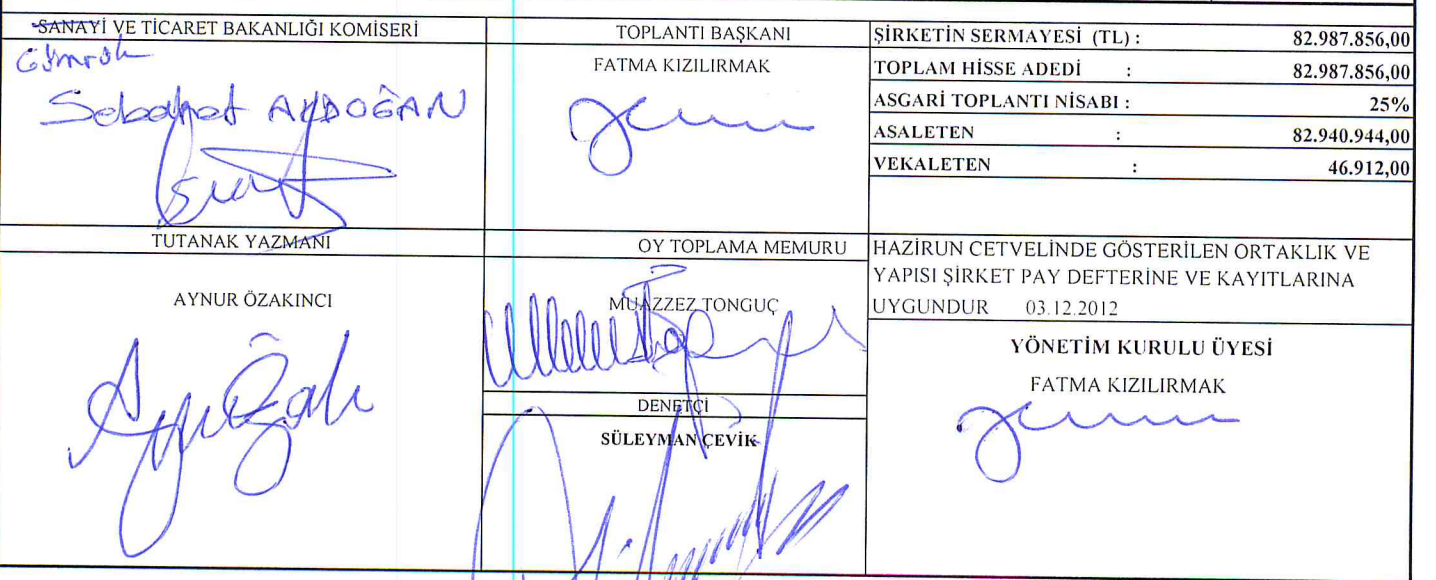 SANAYİ VE TİCARET BAKANLIĞI KOMİSERİ
Gümrük
AYDOĞAN
TOPLANTI BAŞKANI
FATMA KIZILIRMAK
ŞİRKETİN SERMAYESİ (TL) : 82.987.856,00
TOPLAM HİSSE ADEDİ : 82.987.856,00
ASGARİ TOPLANTI NİSABI : 25%
ASALETEN : 82.940.944,00
VEKALETEN : 46.912,00
TUTANAK YAZMANI
AYNUR ÖZAKINCI
OY TOPLAMA MEMURU
MUAZZEZ TONGUÇ
DENETÇİ
SÜLEYMAN ÇEVİK
HAZİRUN CETVELİNDE GÖSTERİLEN ORTAKLIK VE
YAPISI ŞİRKET PAY DEFTERİNE VE KAYITLARINA
UYGUNDUR 03.12.2012
YÖNETİM KURULU ÜYESİ
FATMA KIZILIRMAK